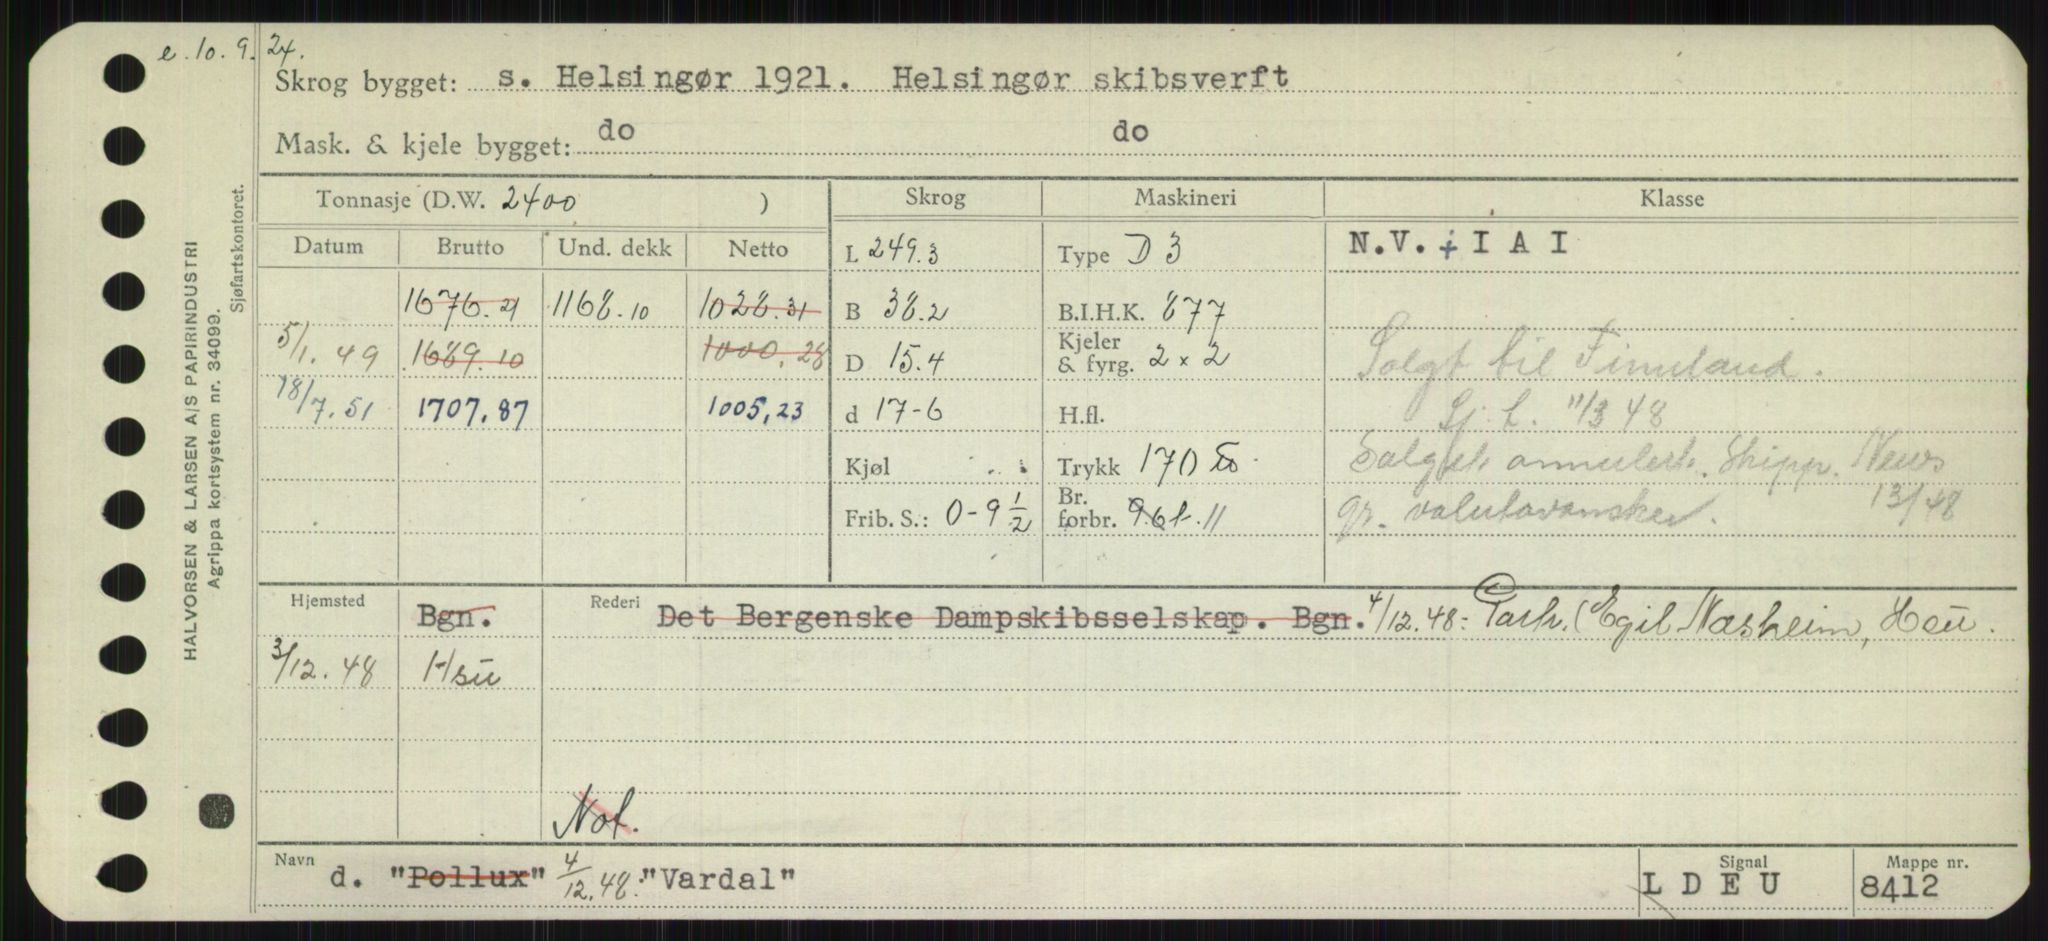 e. 10. 9. 24.
Skrog bygget: s. Helsingør 1921. Helsingør skibsverft
Mask. & kjele bygget: do do
Tonnasje (D.W. 2400 ) Skrog Maskineri Klasse
Datum Brutto Und. dekk Netto L 249.3 Type D 3 N.V. + I A I
1676.21 1168.10 1028.31 B 38.2 B.I.H.K. 877
5/1. 49 1689.10 1000.28 D 15.4 Kjeler & fyrg. 2 x 2 Solgt til Finnland.
18/7. 51 1707.87 1005,23 d 17-6 H.fl. Sj. t. 11/3 48
Kjøl Trykk 170 Salget annulert. Shipp. News
Frib. S.: 0-9 1/2 Br. forbr. 9.6 t. 11 gr. valutavansker. 13/48
Hjemsted Bgn. Rederi Det Bergenske Dampskibsselskap. Bgn. 4/12.48: Partr. (Egil Næsheim, Hsu.
3/12. 48 Hsu
Not.
Navn d. "Pollux" 4/12.48: "Vardal" Signal L D E U Mappe nr. 8412
HALVORSEN & LARSEN A/S PAPIRINDUSTRI
Agrippa kortsystem nr. 34099.
Sjøfartskontoret.